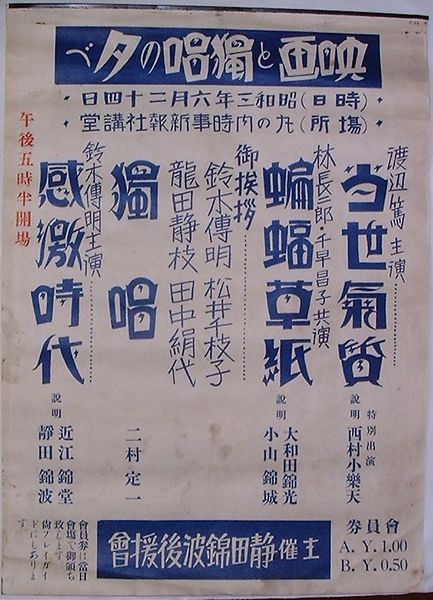 映画と獨唱の夕べ
(時日)昭和三年六月二十四日
(場所)丸の内時事新報社講堂
渡辺篤主演
当世氣質
説明
特別出演
西村小樂天
林長二郎・千早晶子共演
蝙蝠草紙
説明
大和田錦光
小山錦城
御挨拶
鈴木傳明
松井千枝子
龍田静枝
田中絹代
獨唱
二村定一
鈴木傳明主演
感激時代
説明
近江錦堂
靜田錦波
午後五時半開場
會員券
A. Y. 1.00
B. Y. 0.50
主催靜田錦波後援會
會員券は當日
會場で御頒ち
致します
尚プレイガイ
ドにもありま
す。